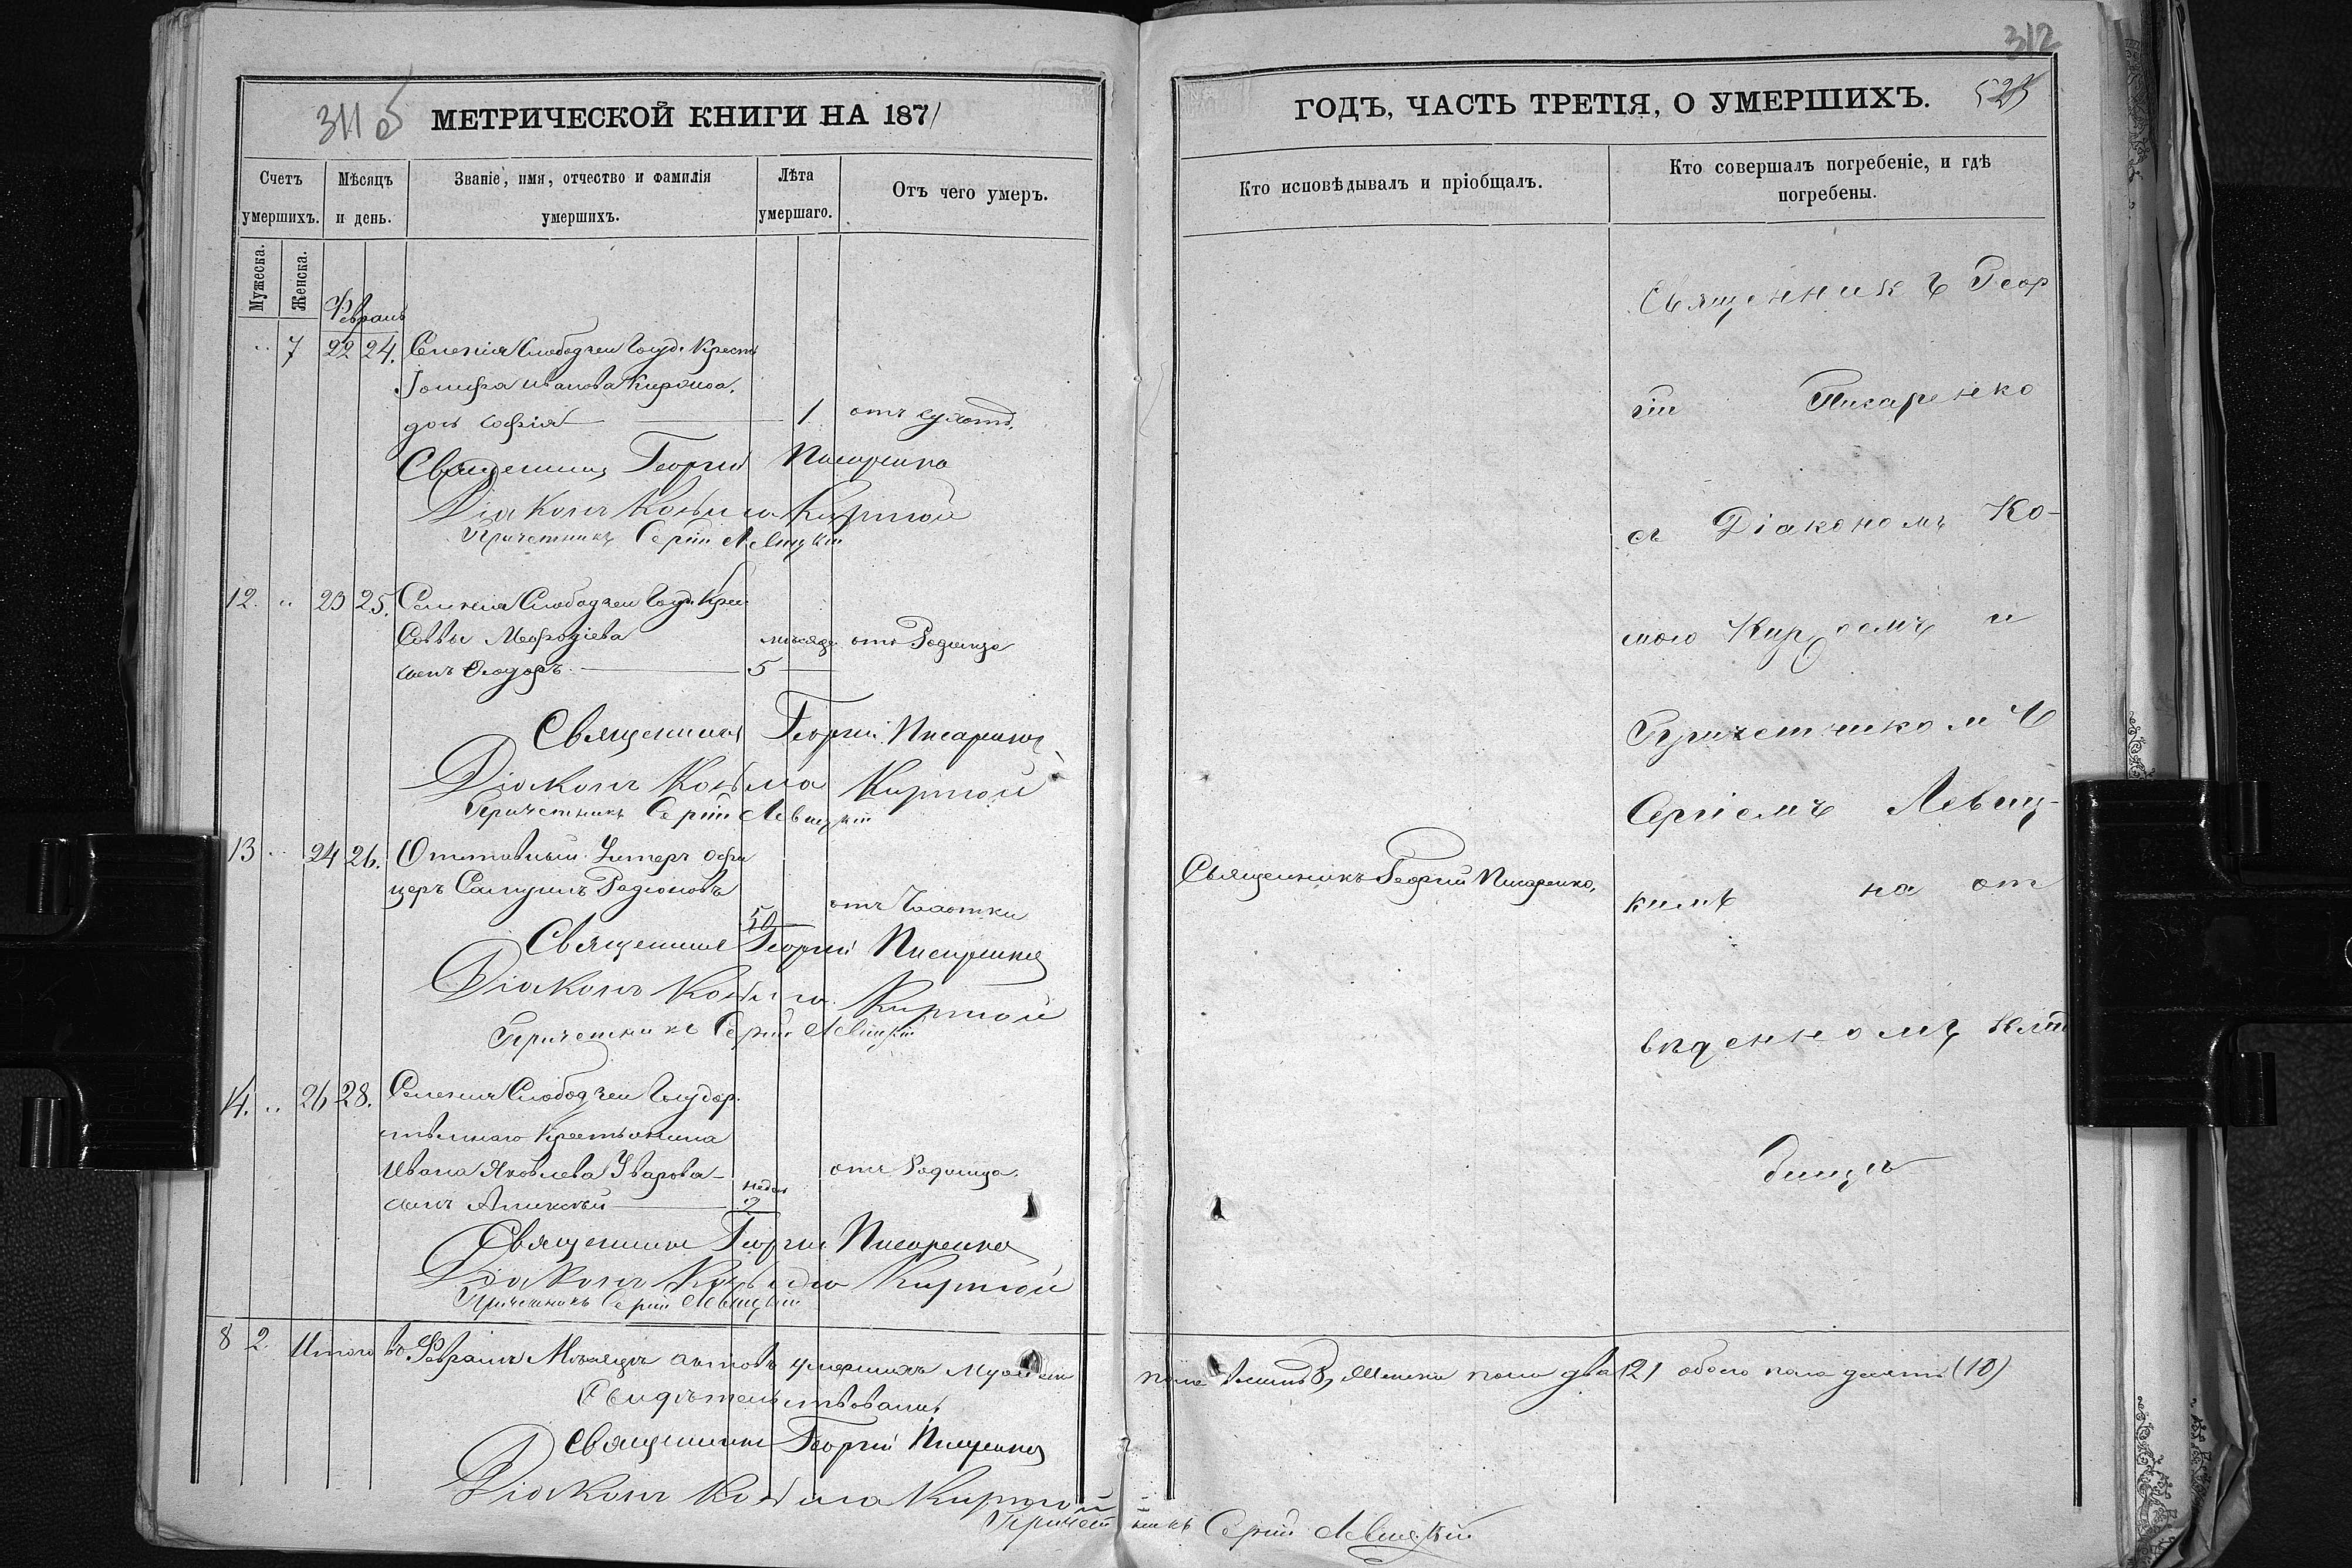 311 б МЕТРИЧЕСКОЙ КНИГИ НА 1871
Счетъ умершихъ.
Мѣсяцъ и день.
Званіе, имя, отчество и фамилія умершихъ.
Лѣта умершаго.
Отъ чего умеръ.
Мужеска.
Женска.
Февраль
.. 7 22 24. Селенія Слободзеи Госуд. Крест
Іосифа Иванова
дочь Софія 1 отъ сухот.
Священникъ Георгій Писаренко
Діаконъ Козьма Кирпой
Причетникъ Сергій Левицкій
12. .. 23 25. Селенія Слободзеи Госуд. Крес
Саввы Меѳодіева мѣсяцъ отъ Родимца
сынъ Ѳеодоръ 5
Священникъ Георгій Писаренко
Діаконъ Козьма Кирпой
Причетникъ Сергій Левицкій
13 .. 24 26. Отставный Унтеръ офи
церъ Самуилъ Родіоновъ
50 отъ Чахотки
Священникъ Георгій Писаренко
Діаконъ Козьма Кирпой
Причетникъ Сергій Левицкій
14. .. 26 28. Селенія Слободзеи Государ
ственнаго Крестьянина
Ивана Яковлева Уварова отъ Родимца.
сынъ Алексѣй недел 2
Священникъ Георгій Писаренко
Діаконъ Козьма Кирпой
Причетникъ Сергій Левицкій
8 2. Итого въ Февралѣ Мѣсяцѣ умершихъ Мужеска
Свидѣтельствовали
Священникъ Георгій Писаренко
Діаконъ Козьма Кирпой
Причет
312
ГОДЪ, ЧАСТЬ ТРЕТІЯ, О УМЕРШИХЪ. 525
Кто исповѣдывалъ и пріобщалъ.
Кто совершалъ погребеніе, и гдѣ погребены.
Священникъ Геор
гій Писаренко
съ Діакономъ Ко-
мою Кирпоемъ и
Причетникомъ
Сергіемъ Левиц-
Священникъ Георгій Писаренко.
кимъ на от
веденномъ клад
бищѣ
пола 8, Женска пола два (2) обоего пола десять (10)
никъ Сергій Левицкій